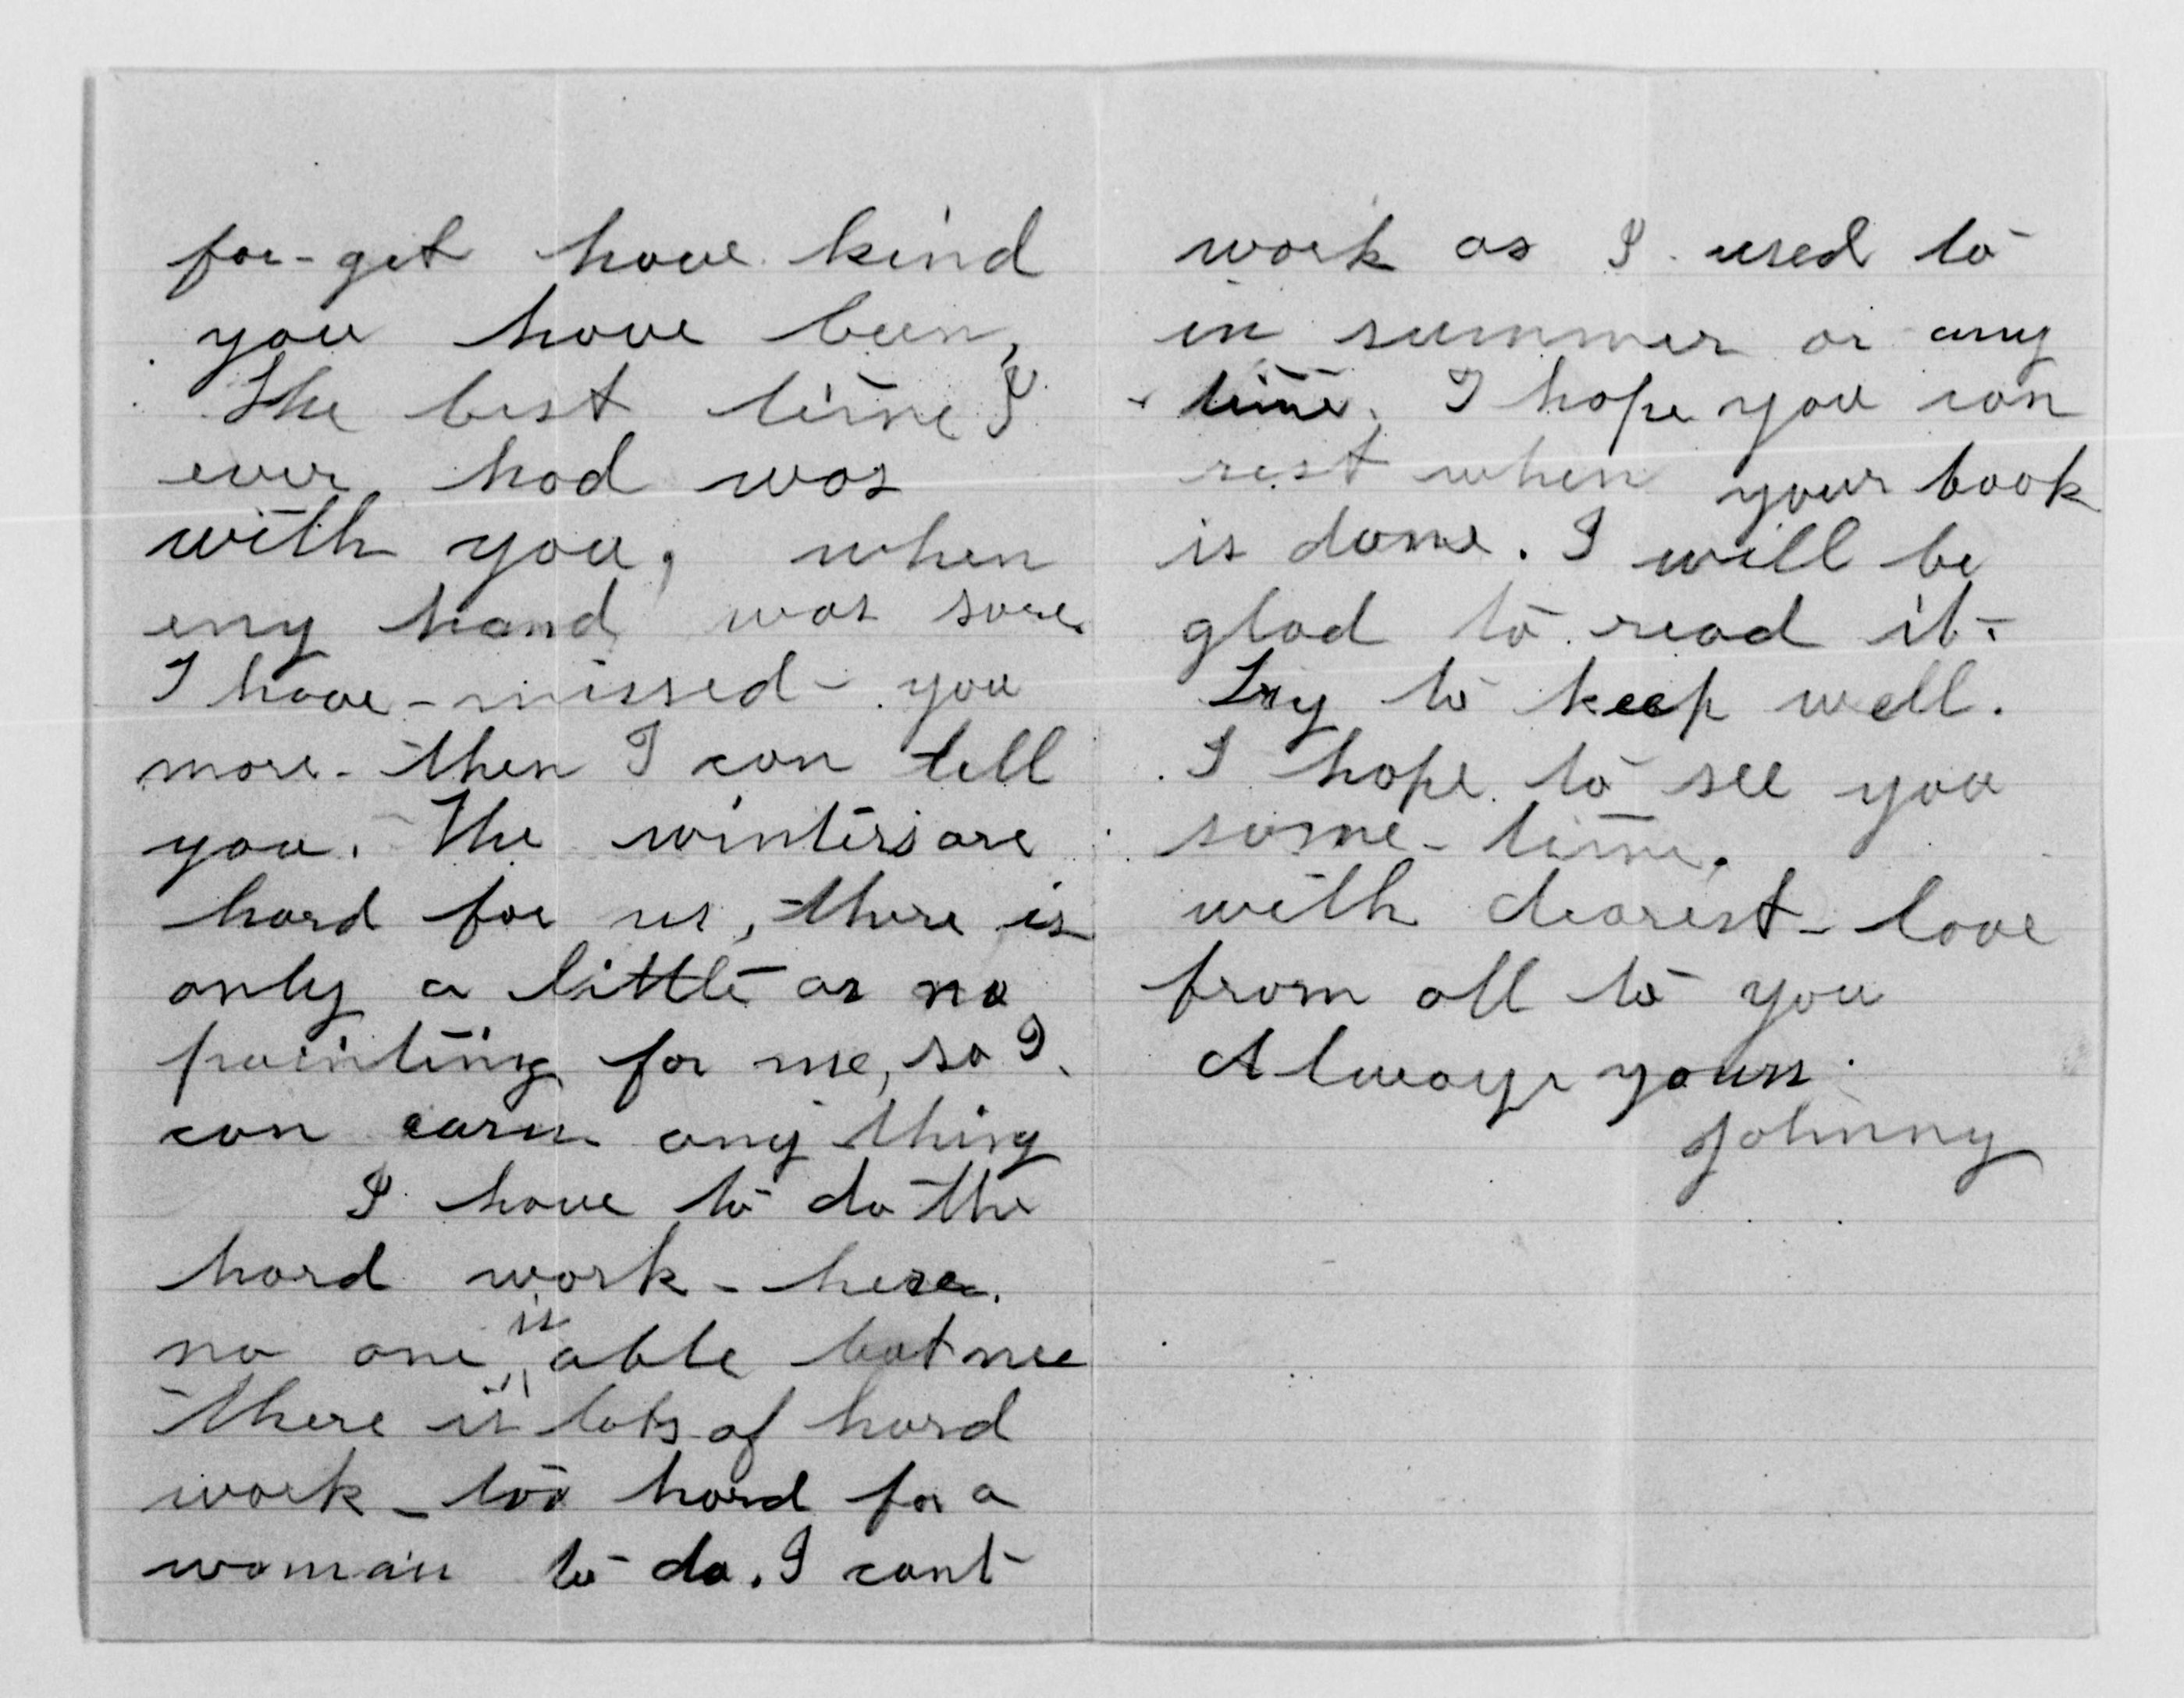 for-get have kind
you have been,
The best time I
ever had was
with you, when
my hand was sore
I have-missed-you
more-then I can tell
you. The winters are
hard for us, there is
only a little or no
painting for me, so I
can earn any thing
I have to do the
hard work-here.
no one is able but me
there is lots of hard
work-too hard for a
woman to do. I cant
work as I used to
in summer or any
time. I hope you can
rest when your book
is done. I will be
glad to read it-
Try to keep well.
I hope to see you
some-time.
with dearest-love
from all to you
Always yours.
Johnny